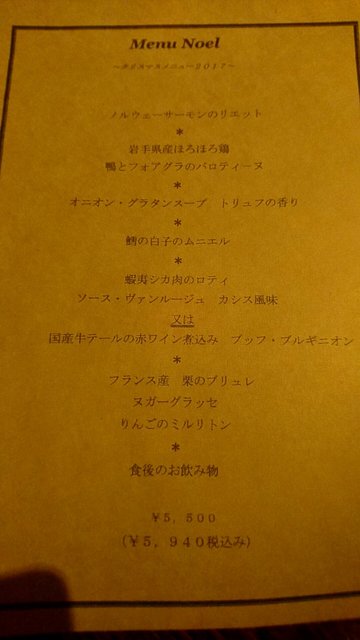 Menu Noel
～クリスマスメニュー２０１７～
ノルウェーサーモンのリエット
*
岩手県産ほろほろ鶏
鴨とフォアグラのバロティーヌ
*
オニオン・グラタンスープ　トリュフの香り
*
鱈の白子のムニエル
*
蝦夷シカ肉のロティ
ソース・ヴァンルージュ　カシス風味
又は
国産牛テールの赤ワイン煮込み　ブッフ・ブルギニオン
*
フランス産　栗のブリュレ
ヌガーグラッセ
りんごのミルリトン
*
食後のお飲み物
￥５，５００
（￥５，９４０税込み）